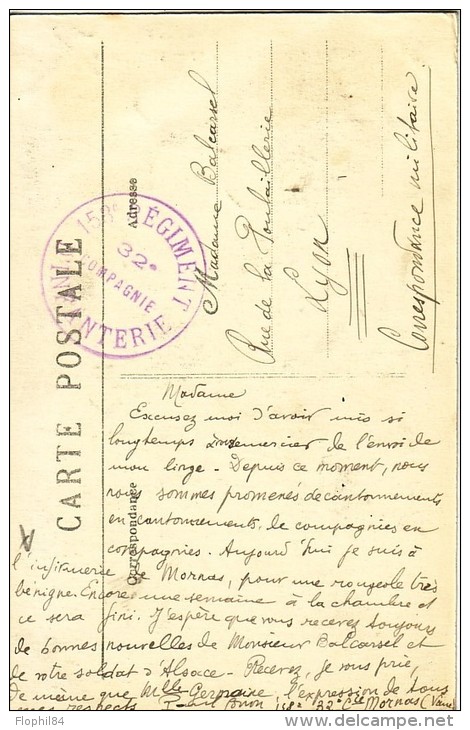 CARTE POSTALE
Correspondance
Adresse
158e RÉGIMENT
INFANTERIE
32e
COMPAGNIE
Madame Balcarsel
Rue de la Poulaillerie
Lyon
Correspondance militaire
Madame
Excusez moi d'avoir mis si
longtemps à vous remercier de l'envoi de
mon linge - Depuis ce moment, nous
nous sommes promenés de cantonnements
en cantonnements, de compagnies en
compagnies. Aujourd'hui je suis à
l'infirmerie de Mornas, pour une rougeole très
bénigne. Encore une semaine à la chambre et
ce sera fini. J'espère que vous recevez toujours
de bonnes nouvelles de Monsieur Balcarsel et
de votre soldat d'Alsace - Recevez, je vous prie,
de même que Mlle Germaine, l'expression de tous
mes respects 158e 32e Cie Mornas
Flophil84